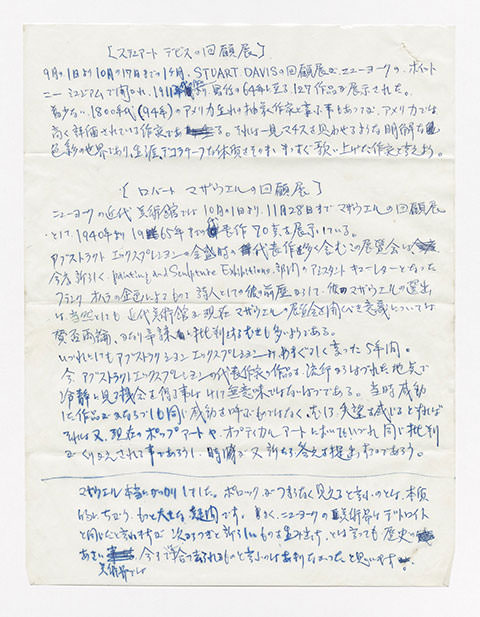 [スチュアート デビスの回顧展]
9月の1日より10月の17日まで1ヶ月、STUART DAVISの回顧展が、ニューヨークの、ホイット
ニー ミュジアムで開かれ、1911年
より、現在の64年に至る127作品が展示された。
数少ない1800年代(94年)のアメリカ生れの抽象作家と言う事もあってか、アメリカでは
高く評価されている作家である。それは一見マチスを思わせるような明確な
色彩の世界であり、生涯デコラチーフな体質をそのまゝまっすぐ歌い上げた作家と言えよう。
[ロバート マザウエルの回顧展]
ニューヨークの近代美術館では10月の1日より、11月28日までマザウエルの回顧展
として、1940年より1965年までの代表作90点を展示している。
アブストラクト エックスプレションの全盛時の代表作を多く含むこの展覧会は
今度新らしく、painting and Sculpture Exhibitions 部門のアシスタントキューレターとなった
フランク オハラの企画によるもので詩人としての彼の前歴からして、彼のマザウエルの選出
は当然にしても近代美術館が現在マザウエルの展覧会を開くべき意義については
賛否両論、かなり辛辣に批判するむきも多いようである。
いづれにしてもアブストラクション エックスプレションがめまぐるしく去った5年間。
今、アブストラクトエックスプレションの代表作家の作品を流行からはなれた地点で
冷静に見る機会を得る事は、けして無意味ではないはづである。当時感動
した作品がかならづしも同じ感動を呼ぶものではなく、むしろ失望を感じるとすれば
それは又、現在のポップアートや、オプティカルアートにおいてもいづれ同じ批判
がくりかえされる事であろうし、時間が又新たな答えを提出するであろう。
マザウエル本当にがっかりしました。ポロックがつまらなく見えると言うのとは、本質
的にちがう、もっと大きな疑問です。
良く、ニューヨークの美術界はデトロイト
と同じだと言われますが次から次ぎと新らしいものを生み出す、とは言っても歴史の
あさい美術界では
今さら評価を云われるものと言うのは余りなかったと思います。